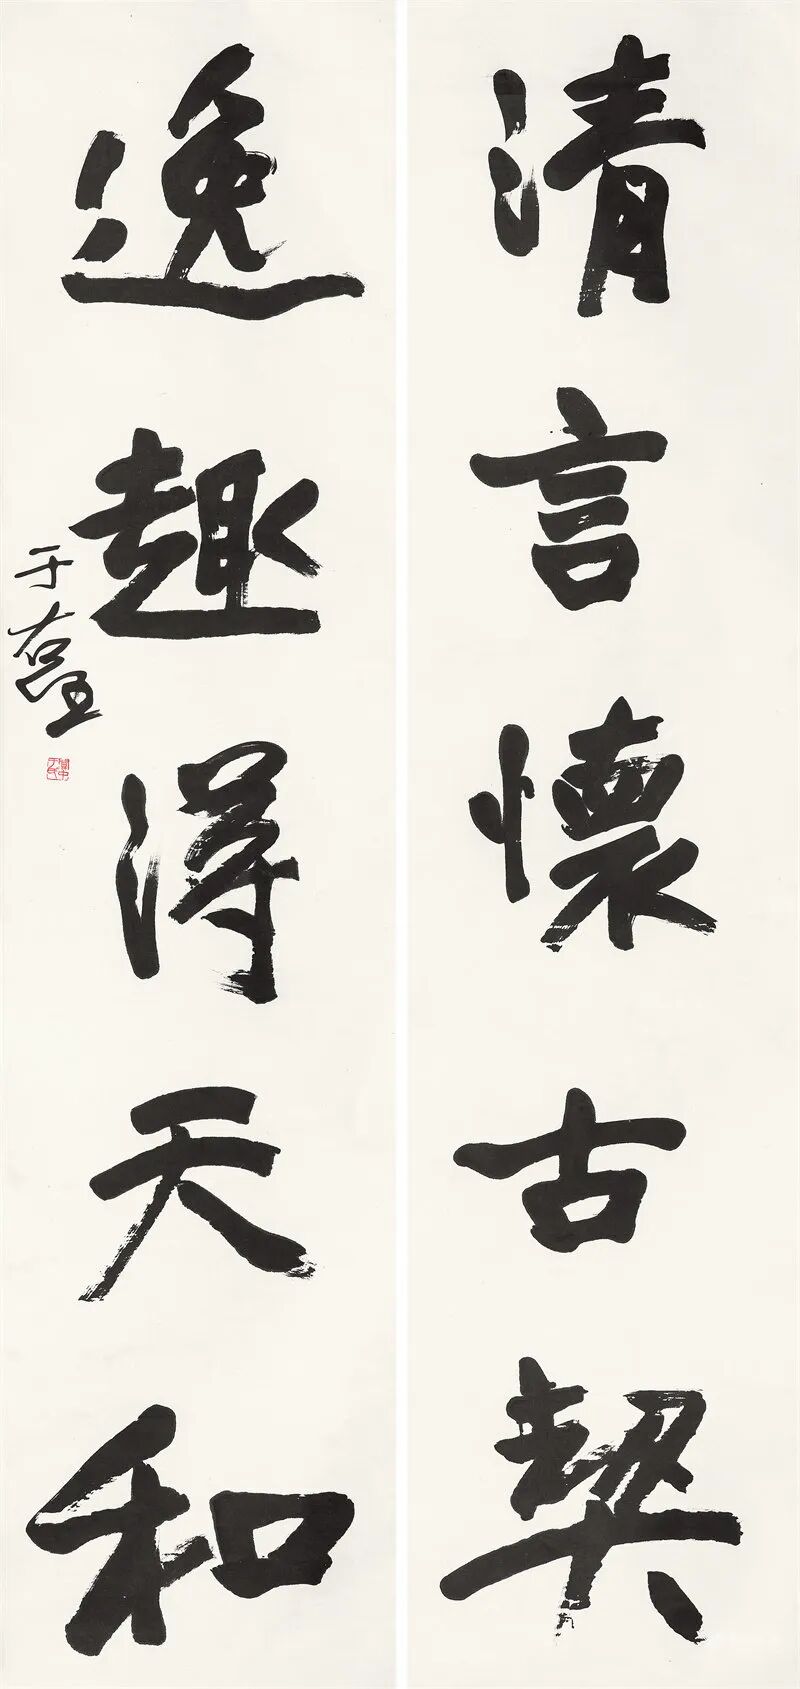 清言懷古契
逸趣得天和
于右任